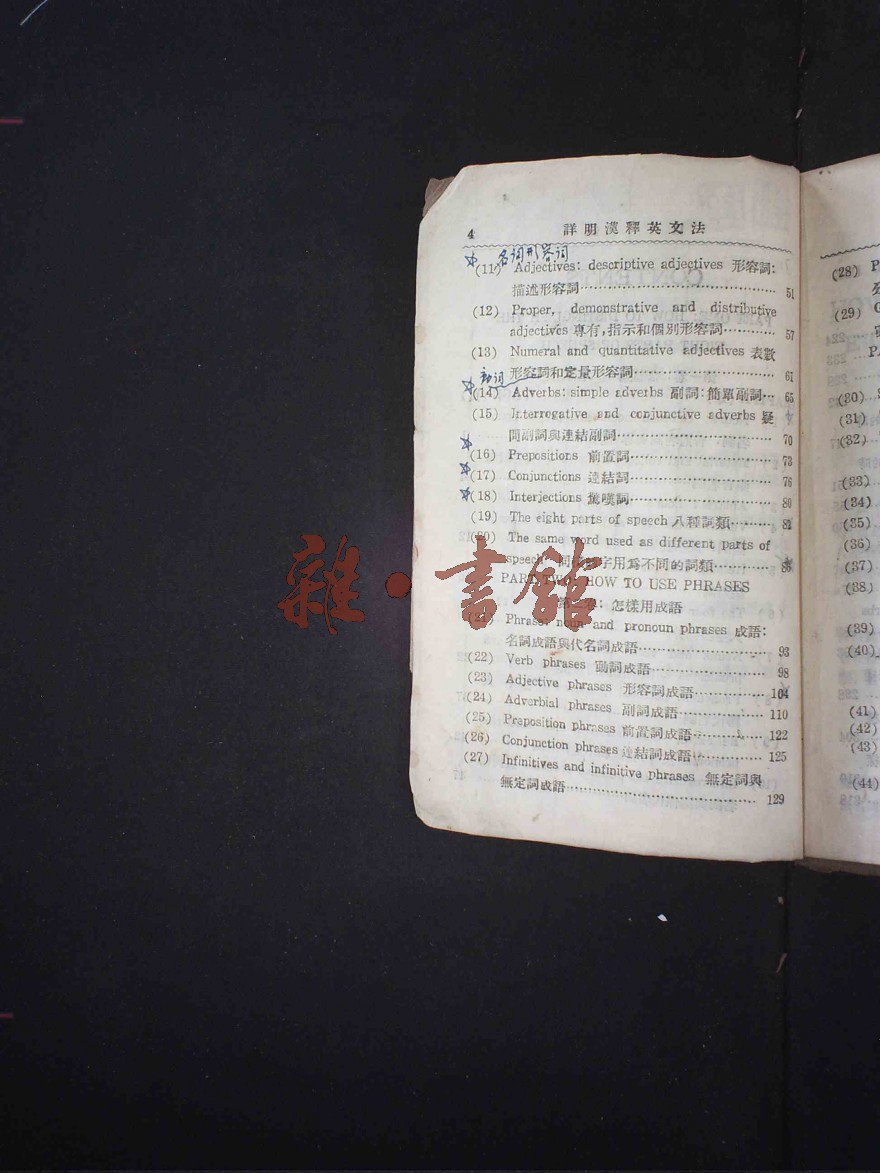 4
詳明漢釋英文法
名词形容词
(11) Adjectives: descriptive adjectives 形容詞:
描述形容詞 51
(12) Proper, demonstrative and distributive
adjectives 專有,指示和個別形容詞 57
(13) Numeral and quantitative adjectives 表數
形容詞和定量形容詞 61
(14) Adverbs: simple adverbs 副詞:簡單副詞 65
(15) Interrogative and conjunctive adverbs 疑
問副詞與連結副詞 70
(16) Prepositions 前置詞 73
(17) Conjunctions 連結詞 76
(18) Interjections 驚嘆詞 80
(19) The eight parts of speech 八種詞類
(20) The same word used as different parts of
speech 字用爲不同的詞類
PART TWO: HOW TO USE PHRASES
怎樣用成語
(21) Phrase: noun and pronoun phrases 成語:
名詞成語與代名詞成語 93
(22) Verb phrases 動詞成語 98
(23) Adjective phrases 形容詞成語 104
(24) Adverbial phrases 副詞成語 110
(25) Preposition phrases 前置詞成語 122
(26) Conjunction phrases 連結詞成語 125
(27) Infinitives and infinitive phrases 無定詞與
無定詞成語 129
雜·書館
(28) P
(29)
(30)
(31)
(32)
(33)
(34)
(35)
(36)
(37)
(38)
(39)
(40)
(41)
(42)
(43)
(44)